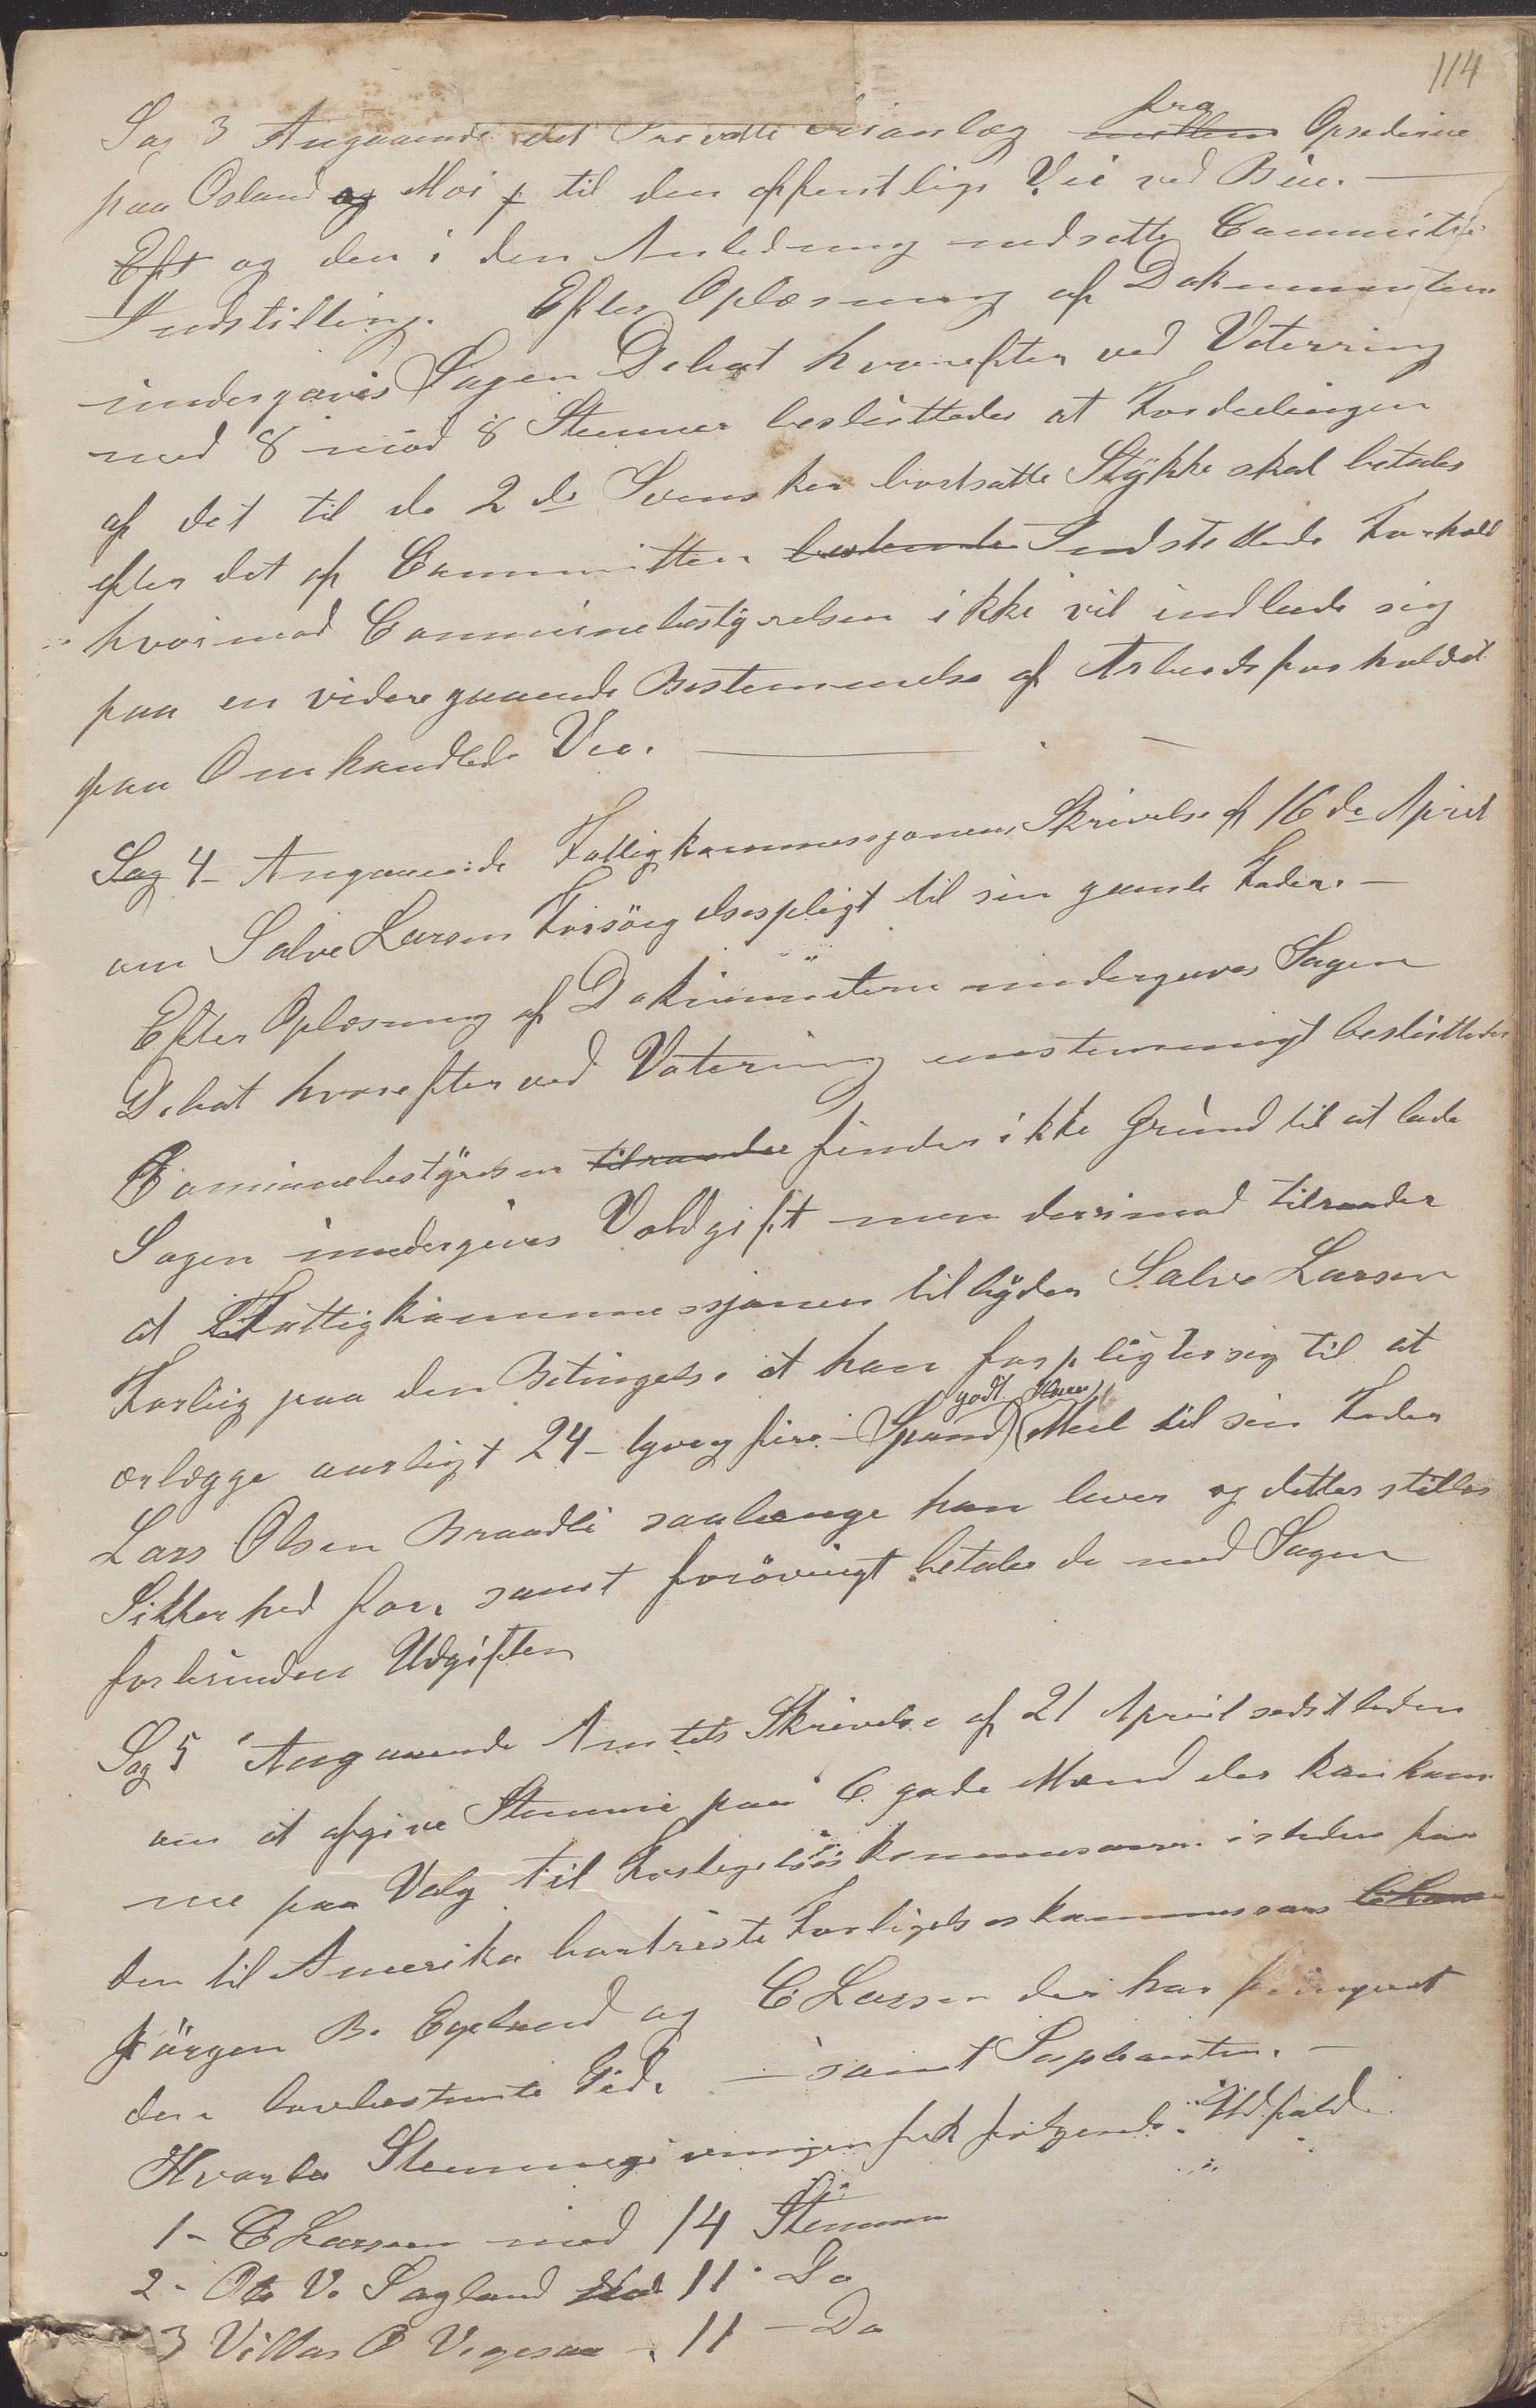 114
Sag 3 Angaaende det Private Veianlæg mellem fra Opsederne
paa Osland og Moi f til den offentlige Vei ved Bue.
Eft og den i den Anledning nedsatte Committe
Indstilling. Efter Oplæsning af Dokumenterne
undergaves Sagen Debat hvorefter ved Votering
med 8 mod 8 Stemmer besluttedes at Fordelingen
af det til de 2de Svensker bortsatte Stykke skal betales
efter det af Committeen bestemte Indstillede Forhold
hvorimod Communebestyrelsen ikke vil indlade sig
paa en videregaaende Bestemmelse af Arbeidsforholdet
paa Omhandlede Vei.
Sag 4 - Angaaende Fattigkommissjonens Skrivelse af 16de April
om Salve Larsen Forsörgelsespligt til sin gamle Fader. -
Efter Oplæsning af Dokumenterne undergaves Sagen
Debat hvorefter ved Votering enstemmigt besluttedes
Communebestyrelsen tilraader finder ikke Grund til at lade
Sagen undergives Voldgift men derimod tilraader
at Fattigkommissjonen tilbyder Salve Larsen
Forlig paa den Betingelse at han forpligter sig til at
erlægge aarligt 24 - tyveg fire - Spand godt Havre Meel til sin Fader
Lars Olsen Braadli saalænge han lever og dettes stilles
Sikkerhed for, samt forövrigt betaler de med Sagen
forbundne Udgifter
Sag 5 Angaaende Amtets Skrivelse af 21 April sidstleden
om at afgive Stemme paa 6 gode Mænd der kan kom
me paa Valg til Forligelseskommissær isteden for
den til Amerika bortreiste Forligelseskommissær
Jörgen B. Egeland og C Larsen der har fungeret
den lovbestemte Tid. - samt Suplanter. -
Hvorba Stemmegivningen fik følgende Udfald
1 - C Larsen med 14 Stemmer
2 - Ole V. Sagland 11 Do
3 Villas O Vegesaa - 11 - Do